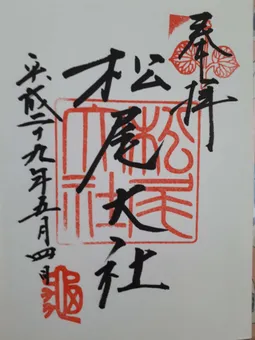 奉拝
松尾大社
平成二十九年五月四日
松尾大社